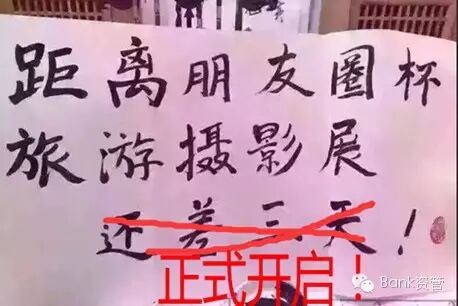 距离朋友圈杯
旅游摄影展
还差三天！
正式开启！
Bank资管